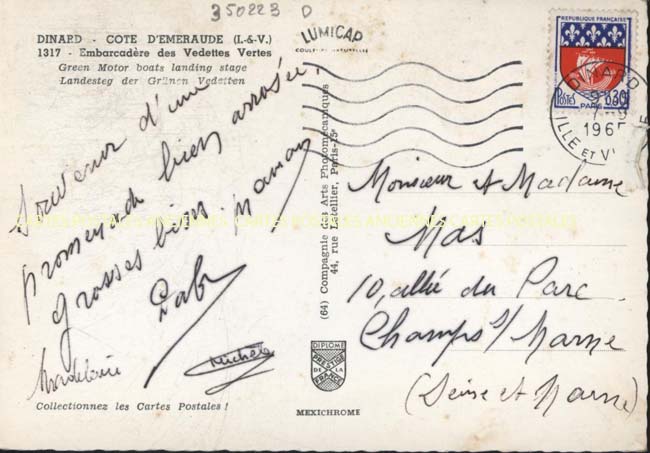 350223 D
DINARD - COTE D'EMERAUDE (I.-&-V.)
1317 - Embarcadère des Vedettes Vertes
Green Motor boats landing stage
Landesteg der Grünen Vedetten
Souvenir d'une
promenade bien arrosée.
grosses bises.
Gaby
Madeleine
Michèle
Collectionnez les Cartes Postales !
(64) Compagnie des Arts Photomécaniques
44, rue Letellier, Paris-15e
DIPLOME
PRESTIGE
DE LA
FRANCE
MEXICHROME
LUMICAP
REPUBLIQUE FRANÇAISE
POSTES
0,30
PARIS
DINARD
196
ILLE ET V
Monsieur et Madame
Mas
10, allée du Parc
Champs s/ Marne
(Seine et Marne)
CARTES POSTALES ANCIENNES CARTES POSTALES ANCIENNES CARTES POSTALES